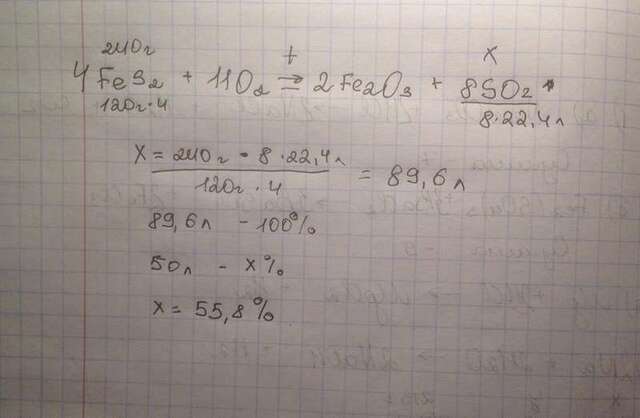 240г x
4FeS₂ + 11O₂ t⇒ 2Fe₂O₃ + 8SO₂
120г·4 8·22,4л
x = 240г · 8·22,4л = 89,6л
120г·4
89,6л - 100%
50л - x%
x = 55,8%